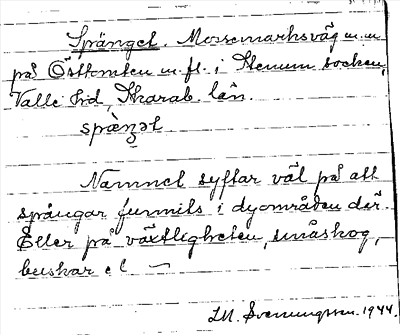 Spängel. Mossemarksväg m.m
på Östtomten m.fl. i Stenum socken,
Valle hd, Skarab. län.
spàŋəl
Namnet syftar väl på att
spångar funnits i dyområden där.
Eller på växtligheten, småskog,
buskar el
LM. Svenungsson. 1944.